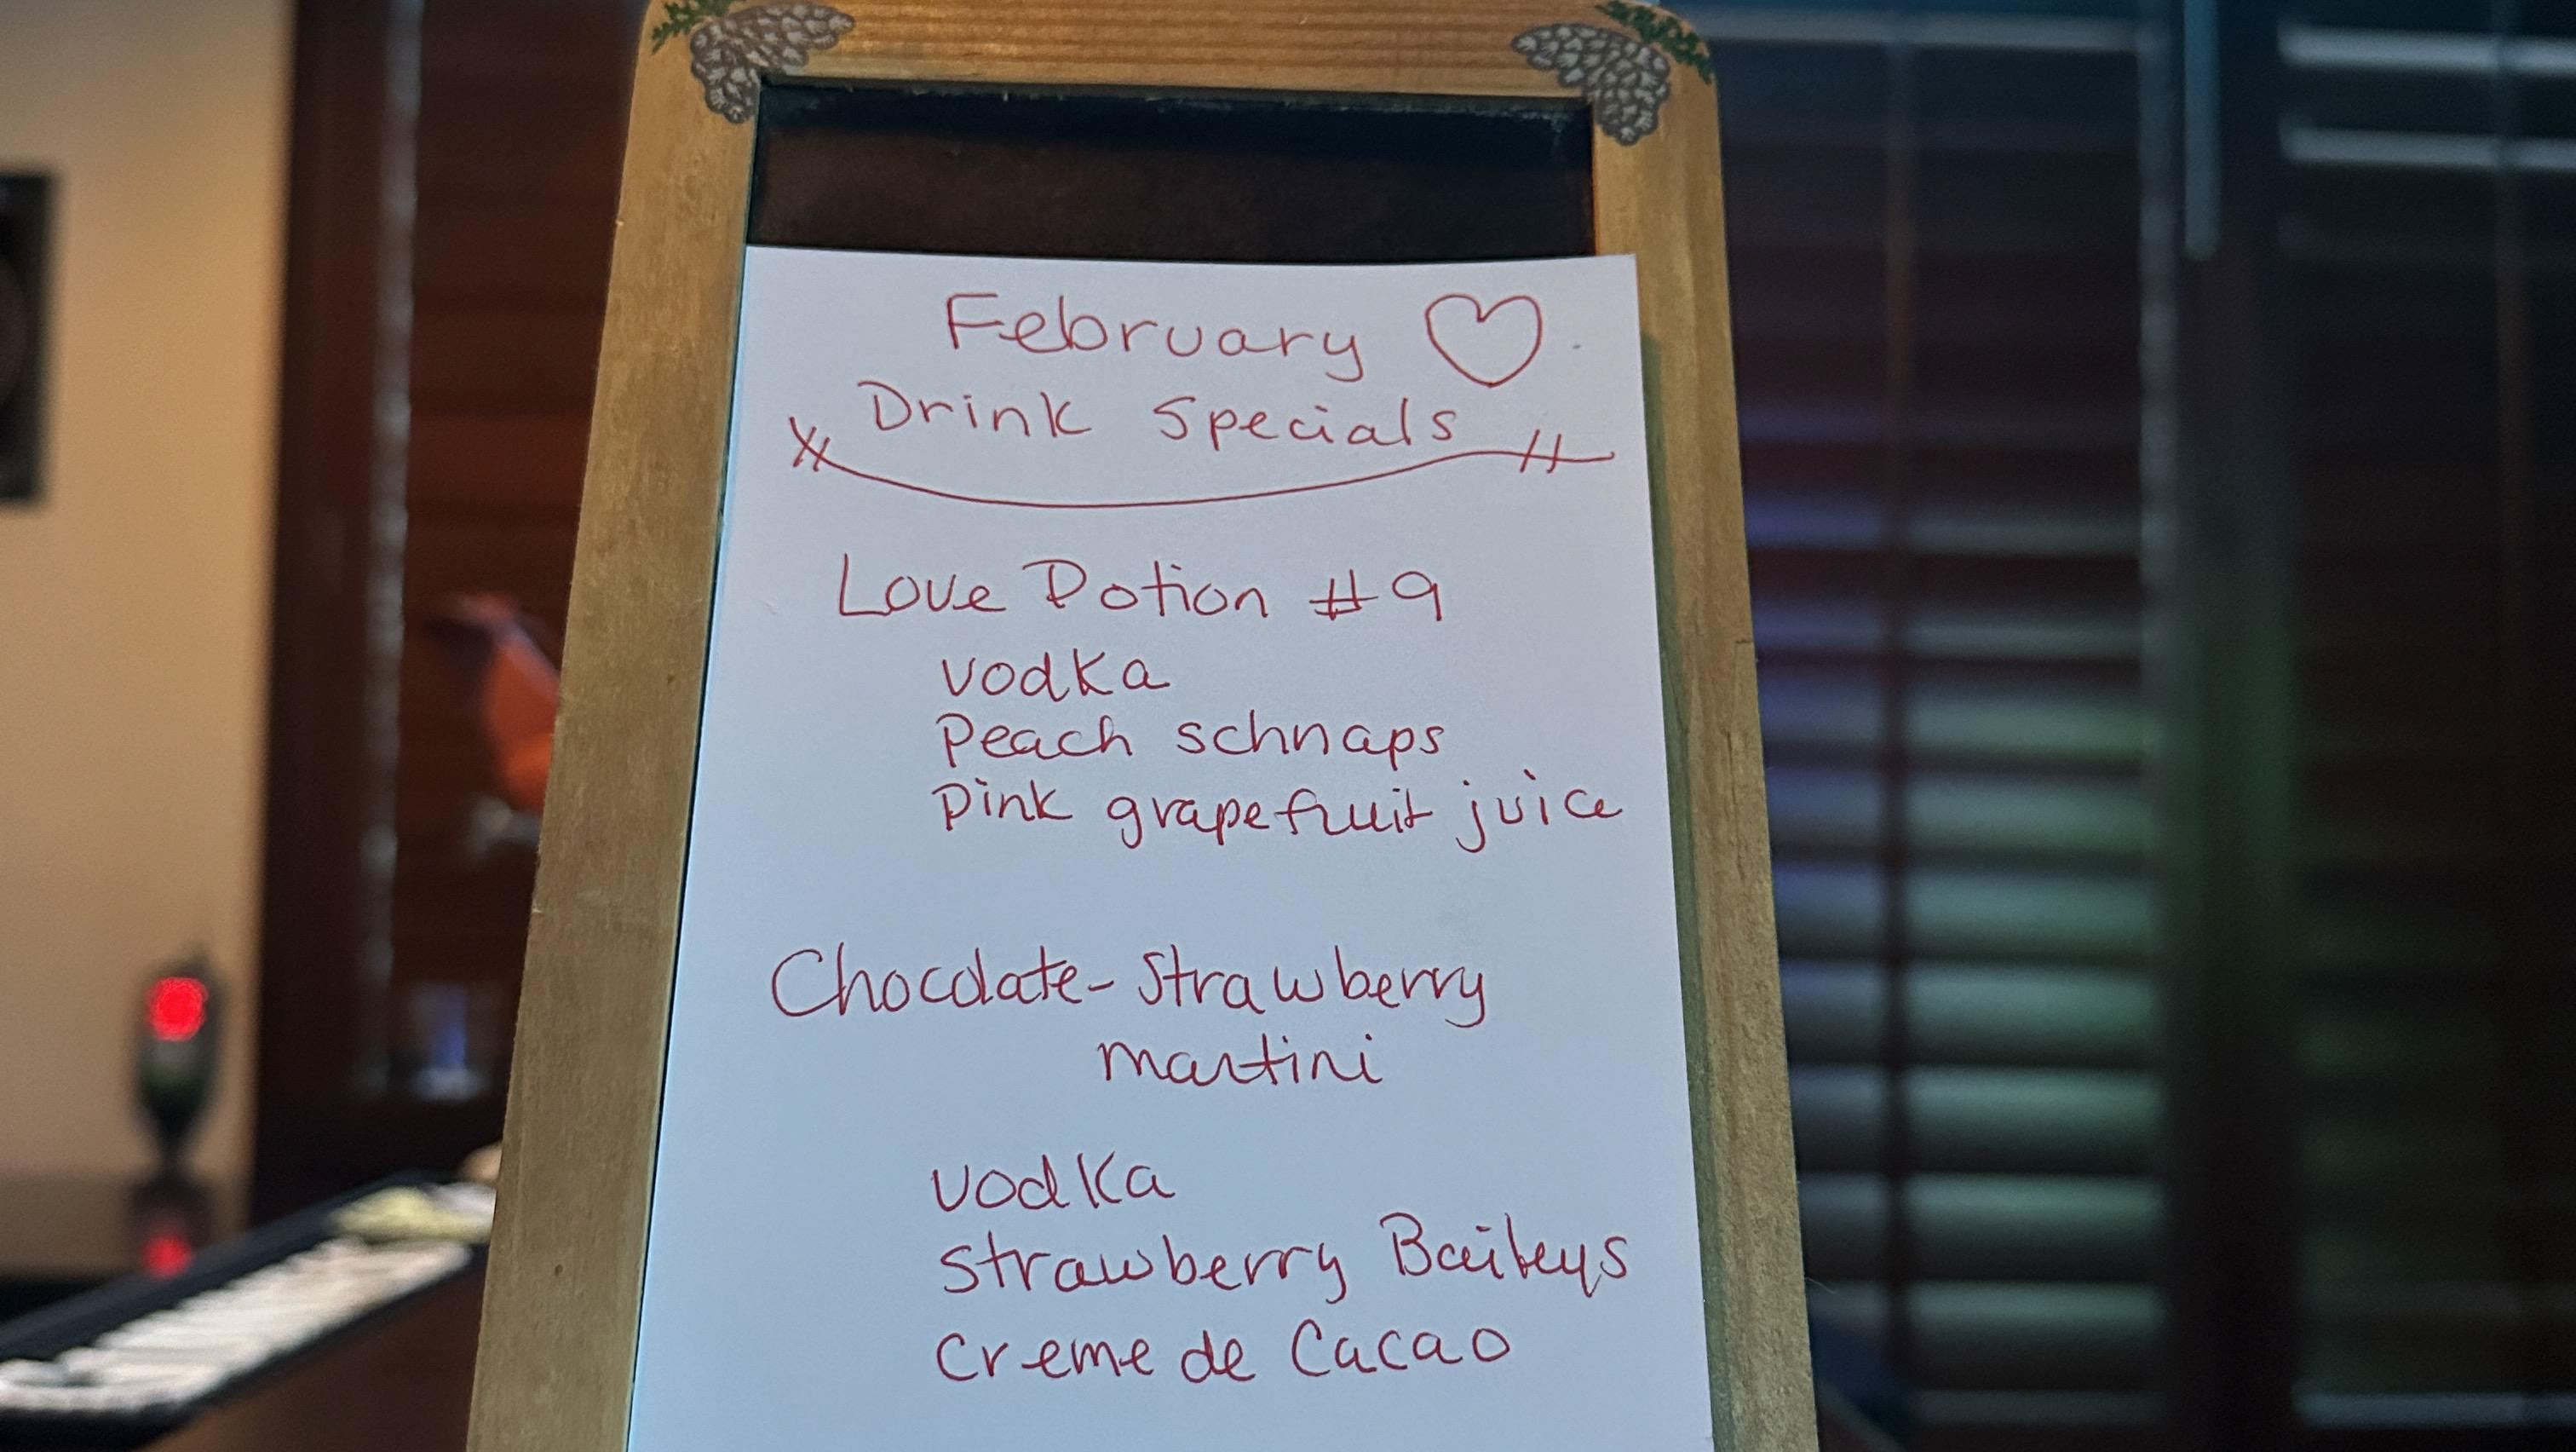 February ♡
Drink Specials
Love Potion #9
vodka
Peach schnaps
Pink grapefruit juice
Chocolate-Strawberry
martini
vodka
Strawberry Baileys
Creme de Cacao